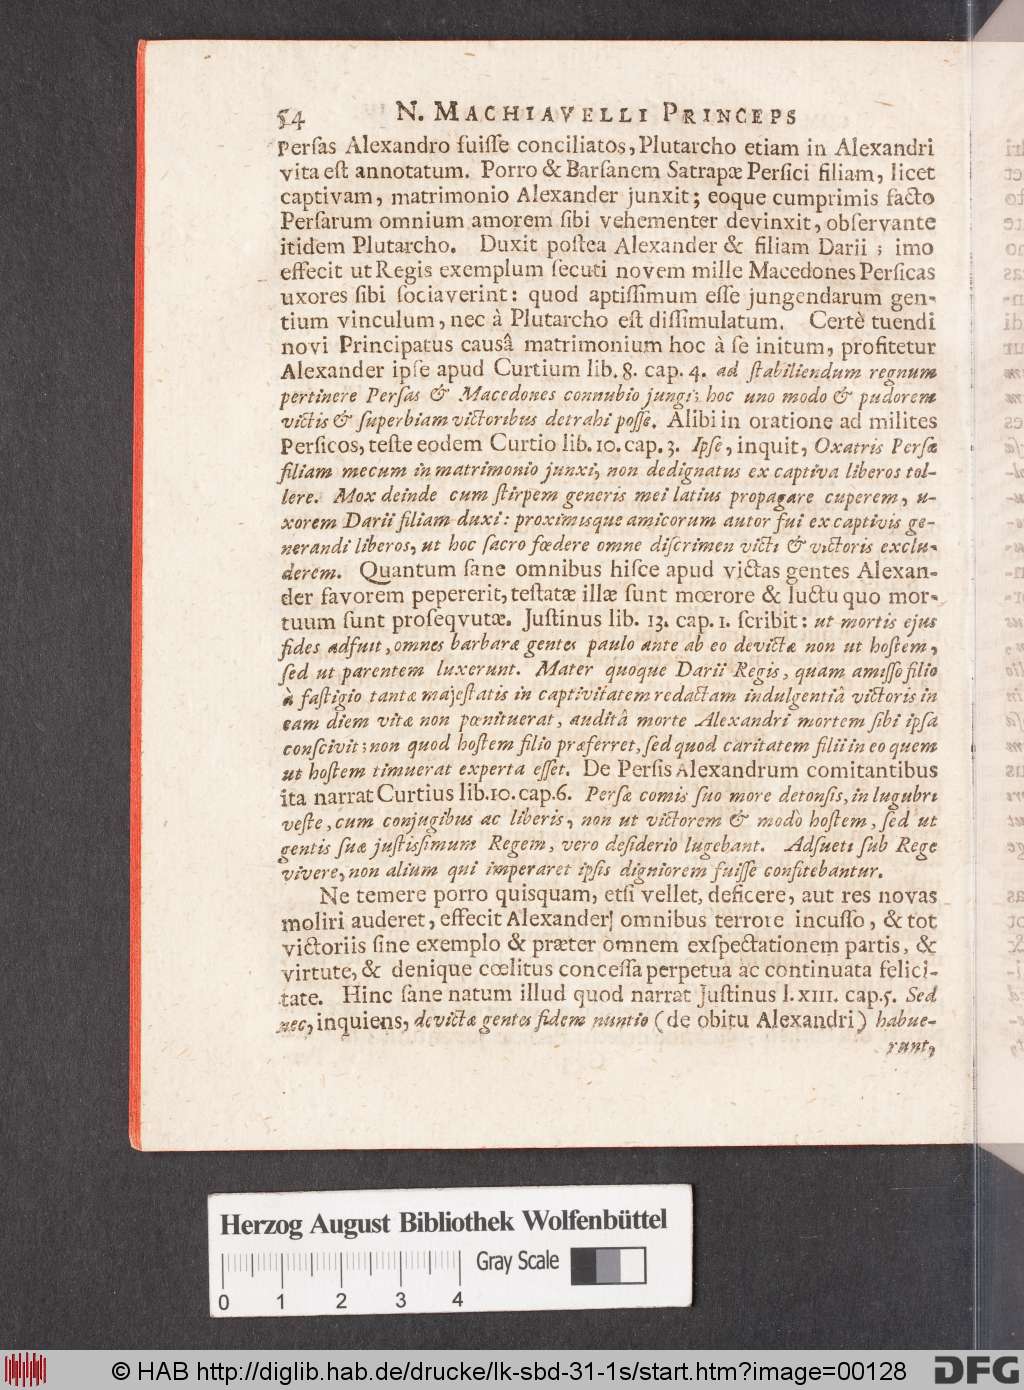 54 N. MACHIAVELLI PRINCEPS
Persas Alexandro fuiſſe conciliatos, Plutarcho etiam in Alexandri
vita eſt annotatum. Porro & Barſanem Satrapæ Perſici filiam, licet
captivam, matrimonio Alexander junxit; eoque cumprimis facto
Perſarum omnium amorem ſibi vehementer devinxit, obſervante
itidem Plutarcho. Duxit poſtea Alexander & filiam Darii; imo
effecit ut Regis exemplum ſecuti novem mille Macedones Perſicas
uxores ſibi ſociaverint: quod aptiſſimum eſſe jungendarum gen-
tium vinculum, nec à Plutarcho eſt diſſimulatum. Certè tuendi
novi Principatus causâ matrimonium hoc à ſe initum, profitetur
Alexander ipſe apud Curtium lib. 8. cap. 4. ad ſtabiliendum regnum
pertinere Perſas & Macedones connubio jungi; hoc uno modo & pudorem
victis & ſuperbiam victoribus detrahi poſſe. Alibi in oratione ad milites
Perſicos, teſte eodem Curtio lib. 10. cap. 3. Ipſe, inquit, Oxatris Perſæ
filiam mecum in matrimonio junxi, non dedignatus ex captiva liberos tol-
lere. Mox deinde cum ſtirpem generis mei latius propagare cuperem, u-
xorem Darii filiam duxi: proximisque amicorum autor fui ex captivis ge-
nerandi liberos, ut hoc ſacro fœdere omne diſcrimen victi & victoris exclu-
derem. Quantum ſane omnibus hiſce apud victas gentes Alexan-
der favorem pepererit, teſtatæ illæ ſunt mœrore & luctu quo mor-
tuum ſunt proſeqvutæ. Juſtinus lib. 13. cap. 1. ſcribit: ut mortis ejus
fides adfuit, omnes barbaræ gentes paulo ante ab eo devictæ non ut hoſtem,
ſed ut parentem luxerunt. Mater quoque Darii Regis, quam amiſſo filio
à faſtigio tantæ majeſtatis in captivitatem redactam indulgentiâ victoris in
eam diem vitæ non pœnituerat, auditâ morte Alexandri mortem ſibi ipſa
conſcivit; non quod hoſtem filio præferret, ſed quod caritatem filii in eo quem
ut hoſtem timuerat experta eſſet. De Perſis Alexandrum comitantibus
ita narrat Curtius lib. 10. cap. 6. Perſæ comis ſuo more detonſis, in lugubri
veſte, cum conjugibus ac liberis, non ut victorem & modò hoſtem, ſed ut
gentis ſuæ juſtissimum Regem, vero deſiderio lugebant. Adſueti ſub Rege
vivere, non alium qui imperaret ipſis digniorem fuiſſe confitebantur.
Ne temere porro quisquam, etſi vellet, deficere, aut res novas
moliri auderet, effecit Alexander omnibus terrore incuſſo, & tot
victoriis ſine exemplo & præter omnem exſpectationem partis, &
virtute, & denique cœlitus conceſſa perpetua ac continuata felici-
tate. Hinc ſane natum illud quod narrat Juſtinus l. XIII. cap. 5. Sed
nec, inquiens, devictæ gentes fidem nuntio (de obitu Alexandri) habue-
rant,
Herzog August Bibliothek Wolfenbüttel
Gray Scale
0 1 2 3 4
© HAB http://diglib.hab.de/drucke/lk-sbd-31-1s/start.htm?image=00128
DFG